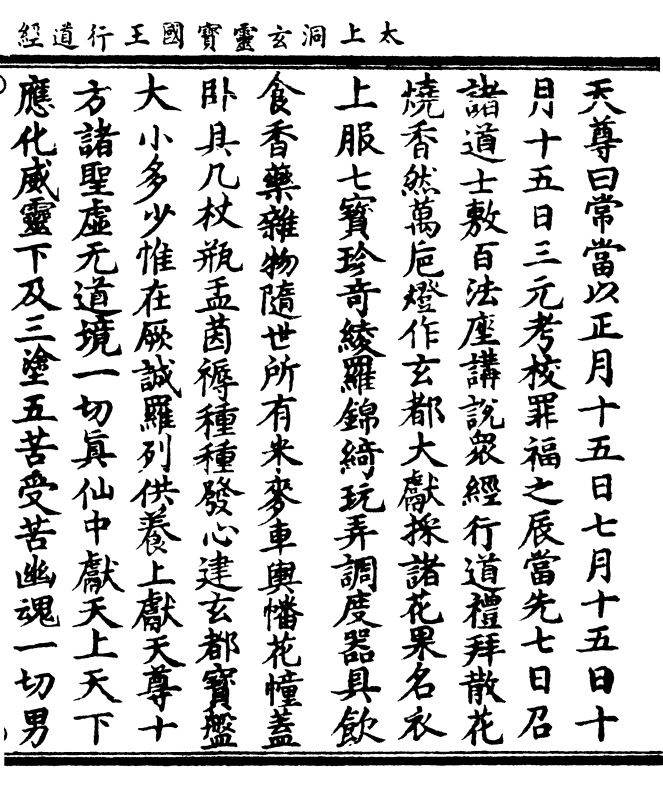 太上洞玄靈寶國王行道經
天尊曰常當以正月十五日七月十五日十
月十五日三元考校罪福之辰當先七日召
諸道士敷百法座講說衆經行道禮拜散花
燒香然萬巵燈作玄都大獻採諸花果名衣
上服七寶珍奇綾羅錦綺玩弄調度器具飲
食香藥雜物隨世所有米麥車輿幡花幢蓋
卧具几杖瓶盂茵褥種種發心建玄都寶盤
大小多少惟在厥誠羅列供養上獻天尊十
方諸聖虛无道境一切眞仙中獻天上天下
應化威靈下及三塗五苦受苦幽魂一切男